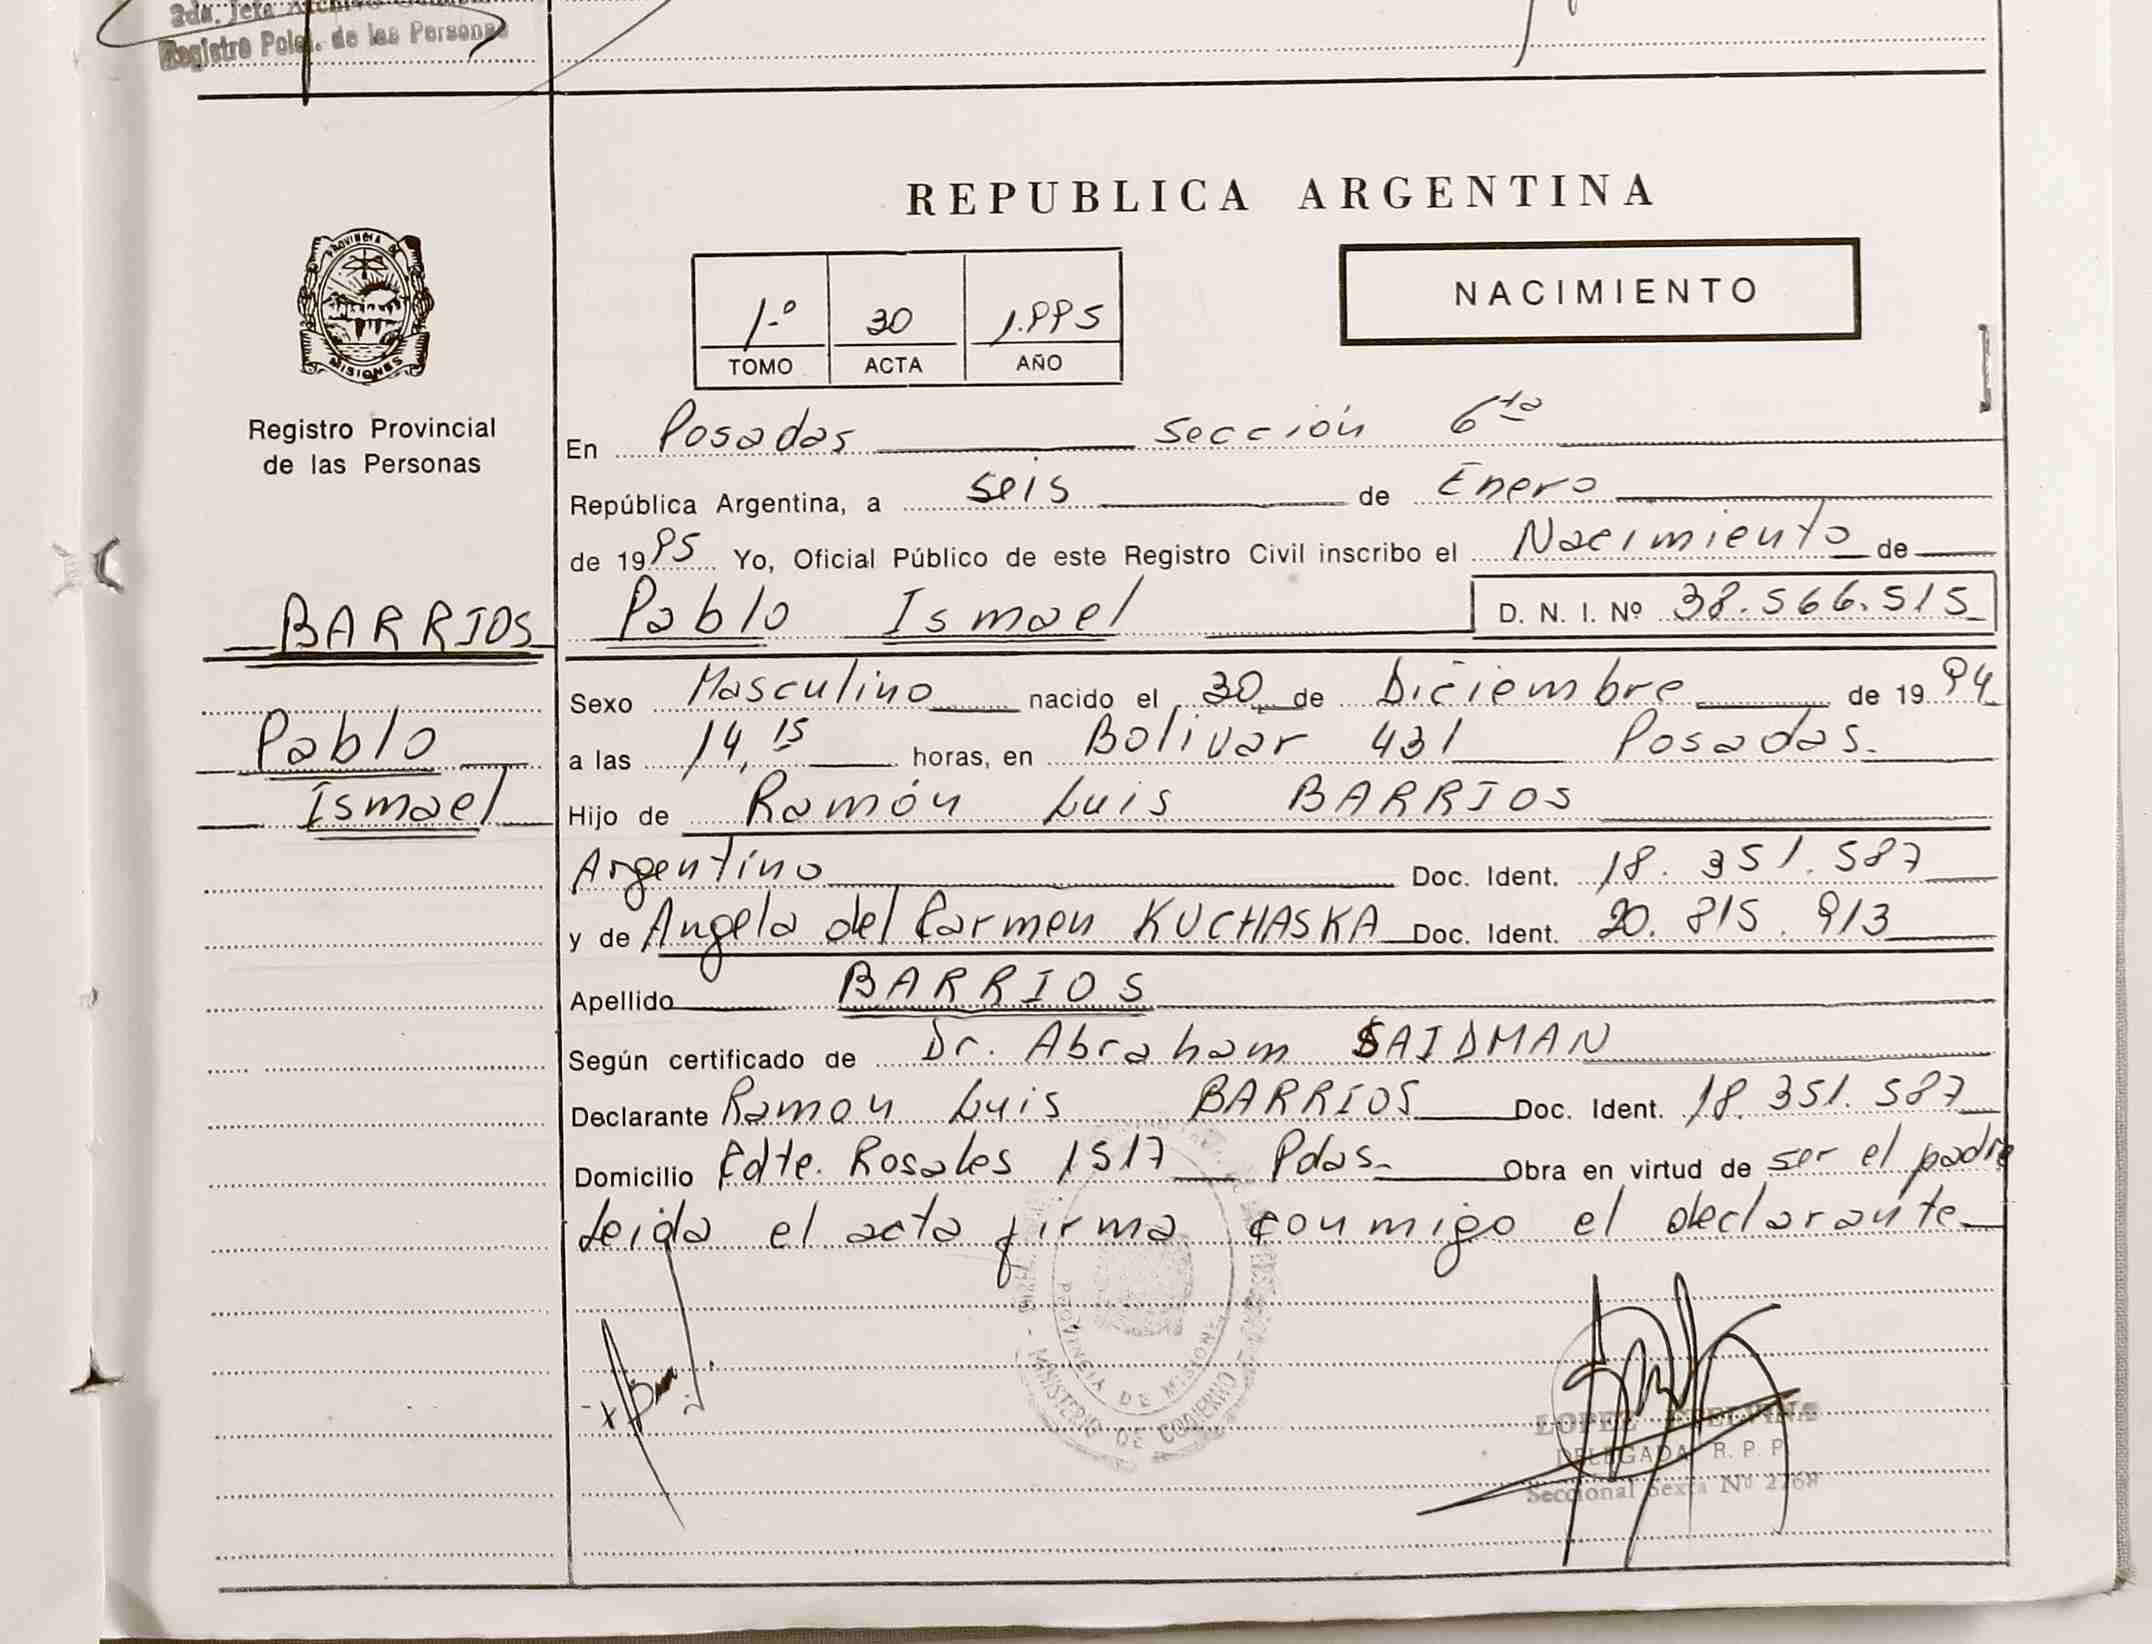 Registro Pcial. de las Personas
REPUBLICA ARGENTINA
PROVINCIA DE
MISIONES
Registro Provincial
de las Personas
1-º 30 1.995
TOMO ACTA AÑO
NACIMIENTO
En Posadas Sección 6ta
República Argentina, a seis de Enero
de 1995 Yo, Oficial Público de este Registro Civil inscribo el Nacimiento de
BARRIOS Pablo Ismael D. N. I. Nº 38.566.515
Sexo Masculino nacido el 30 de Diciembre de 1994
Pablo
a las 14,15 horas, en Bolivar 431 Posadas.
Ismael
Hijo de Ramón Luis BARRIOS
Argentino Doc. Ident. 18.351.587
y de Angela del Carmen KUCHASKA Doc. Ident. 20.815.913
Apellido BARRIOS
Según certificado de Dr. Abraham SAIDMAN
Declarante Ramon Luis BARRIOS Doc. Ident. 18.351.587
Domicilio Cdte. Rosales 1517 Pdas. Obra en virtud de ser el padre
Leida el acta firma conmigo el declarante
PROVINCIA DE MISIONES
MINISTERIO DE GOBIERNO
LOPEZ
DELEGADA R. P. P.
Seccional Sexta Nº 2768